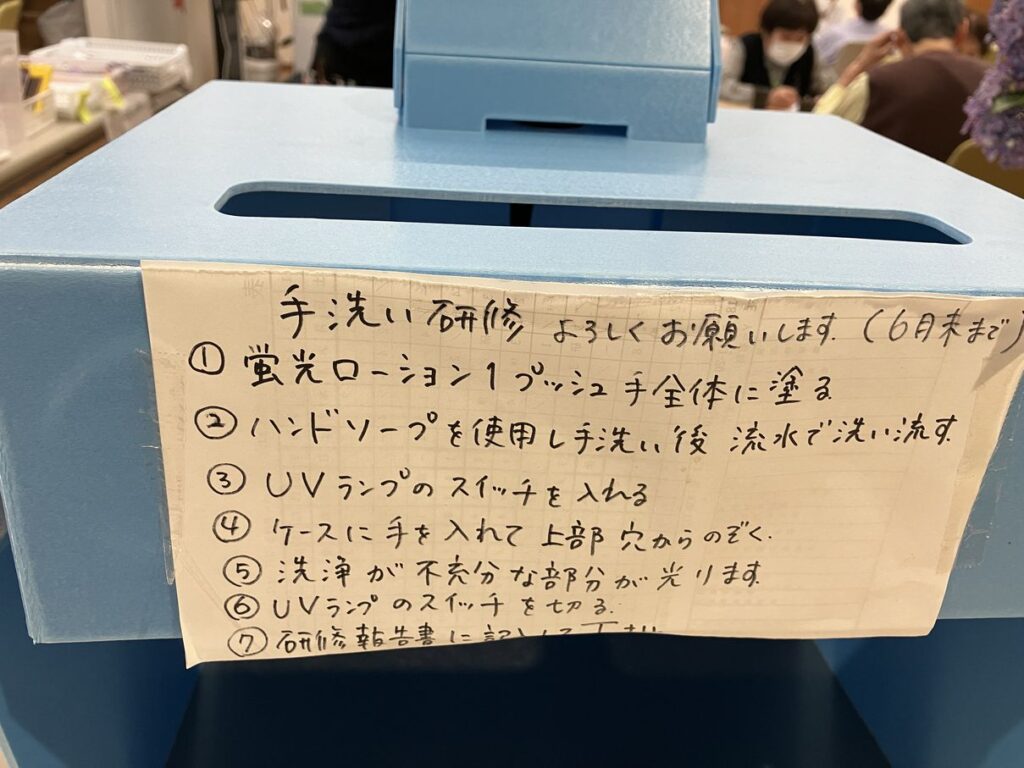 手洗い研修 よろしくお願いします.(6月末まで)
① 蛍光ローション1プッシュ 手全体に塗る
② ハンドソープを使用し手洗い後 流水で洗い流す.
③ UVランプのスイッチを入れる
④ ケースに手を入れて 上部穴からのぞく.
⑤ 洗浄が不充分な部分が光ります.
⑥ UVランプのスイッチを切る.
⑦ 研修報告書に記入して下さい